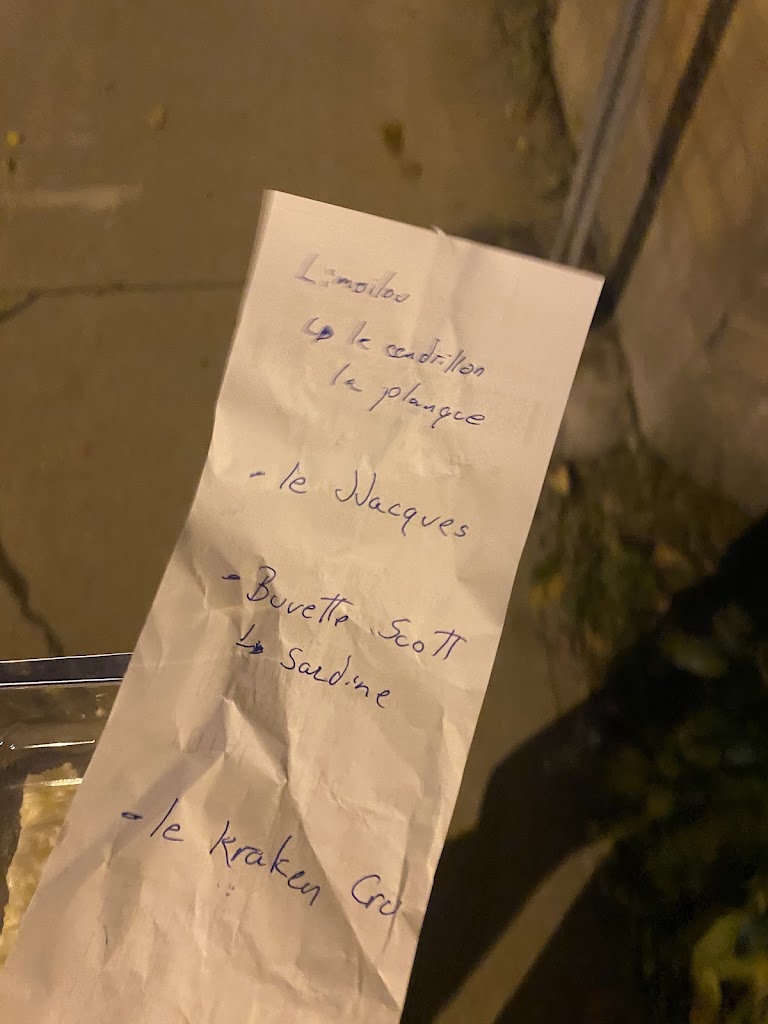 Limoilou
↳ le cendrillon
la planque
- le JJacques
- Buvette Scott
↳ Sardine
- le Kraken Cru